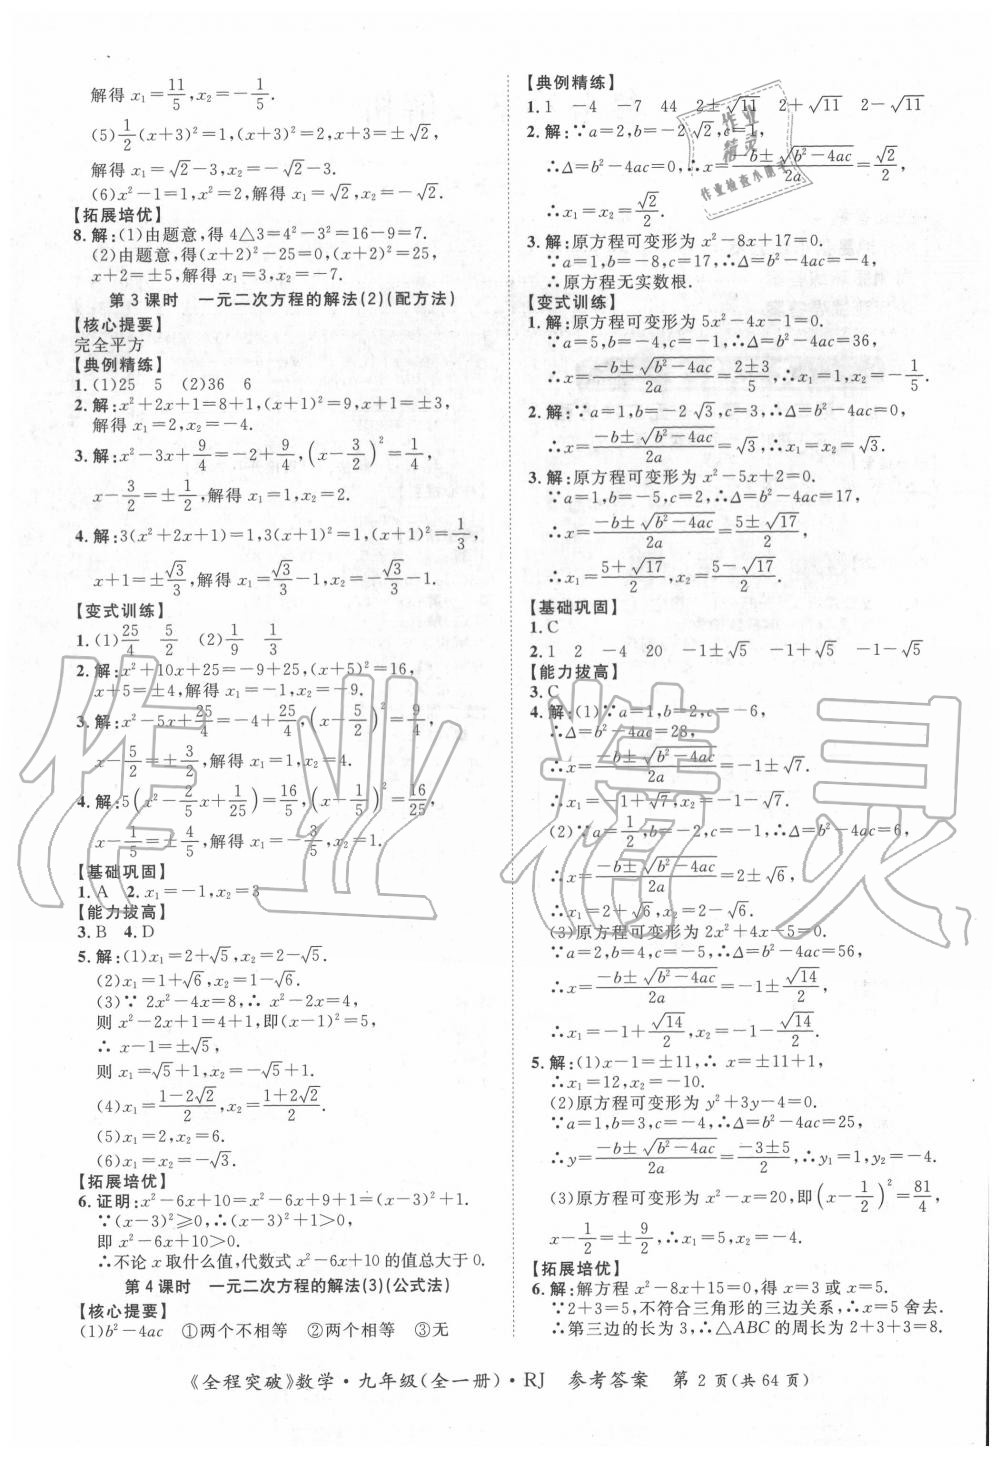 解得 x₁=11/5,x₂=-1/5.
(5)1/2(x+3)²=1,(x+3)²=2,x+3=±√2,
解得 x₁=√2-3,x₂=-√2-3.
(6)x²-1=1,x²=2,解得 x₁=√2,x₂=-√2.
【拓展培优】
8.解:(1)由题意,得 4△3=4²-3²=16-9=7.
(2)由题意,得(x+2)²-25=0,(x+2)²=25,
x+2=±5,解得 x₁=3,x₂=-7.
第 3 课时 一元二次方程的解法(2)(配方法)
【核心提要】
完全平方
【典例精练】
1.(1)25 5 (2)36 6
2.解:x²+2x+1=8+1,(x+1)²=9,x+1=±3,
解得 x₁=2,x₂=-4.
3.解:x²-3x+9/4=-2+9/4,(x-3/2)²=1/4,
x-3/2=±1/2,解得 x₁=1,x₂=2.
4.解:3(x²+2x+1)=1,3(x+1)²=1,(x+1)²=1/3,
x+1=±√3/3,解得 x₁=√3/3-1,x₂=-√3/3-1.
【变式训练】
1.(1)25/4 5/2 (2)1/9 1/3
2.解:x²+10x+25=-9+25,(x+5)²=16,
x+5=±4,解得 x₁=-1,x₂=-9.
3.解:x²-5x+25/4=-4+25/4,(x-5/2)²=9/4,
x-5/2=±3/2,解得 x₁=1,x₂=4.
4.解:5(x²-2/5x+1/25)=16/5,(x-1/5)²=16/25,
x-1/5=±4/5,解得 x₁=-3/5,x₂=1.
【基础巩固】
1.A 2.x₁=-1,x₂=3
【能力拔高】
3.B 4.D
5.解:(1)x₁=2+√5,x₂=2-√5.
(2)x₁=1+√6,x₂=1-√6.
(3)∵ 2x²-4x=8,∴ x²-2x=4,
则 x²-2x+1=4+1,即(x-1)²=5,
∴ x-1=±√5,
则 x₁=√5+1,x₂=-√5+1.
(4)x₁=1-2√2/2,x₂=1+2√2/2.
(5)x₁=2,x₂=6.
(6)x₁=x₂=-√3.
【拓展培优】
6.证明:x²-6x+10=x²-6x+9+1=(x-3)²+1.
∵(x-3)²≥0,∴(x-3)²+1>0,
即 x²-6x+10>0.
∴不论 x 取什么值,代数式 x²-6x+10 的值总大于 0.
第 4 课时 一元二次方程的解法(3)(公式法)
【核心提要】
(1)b²-4ac ①两个不相等 ②两个相等 ③无
【典例精练】
1.1 -4 -7 44 2±√11 2+√11 2-√11
2.解:∵a=2,b=-2√2,c=1,
∴Δ=b²-4ac=0,∴x=-b±√b²-4ac/2a=√2/2,
∴x₁=x₂=√2/2.
3.解:原方程可变形为 x²-8x+17=0.
∵a=1,b=-8,c=17,∴Δ=b²-4ac=-4,
∴原方程无实数根.
【变式训练】
1.解:原方程可变形为 5x²-4x-1=0.
∵a=5,b=-4,c=-1,∴Δ=b²-4ac=36,
∴x=-b±√b²-4ac/2a=2±3/5,∴x₁=1,x₂=-1/5.
2.解:∵a=1,b=-2√3,c=3,∴Δ=b²-4ac=0,
∴x=-b±√b²-4ac/2a=√3,∴x₁=x₂=√3.
3.解:原方程可变形为 x²-5x+2=0.
∵a=1,b=-5,c=2,∴Δ=b²-4ac=17,
∴x=-b±√b²-4ac/2a=5±√17/2,
∴x₁=5+√17/2,x₂=5-√17/2.
【基础巩固】
1.C
2.1 2 -4 20 -1±√5 -1+√5 -1-√5
【能力拔高】
3.C
4.解:(1)∵a=1,b=2,c=-6,
∴Δ=b²-4ac=28,
∴x=-b±√b²-4ac/2a=-1±√7,
∴x₁=-1+√7,x₂=-1-√7.
(2)∵a=1/2,b=-2,c=-1,∴Δ=b²-4ac=6,
∴x=-b±√b²-4ac/2a=2±√6,
∴x₁=2+√6,x₂=2-√6.
(3)原方程可变形为 2x²+4x-5=0.
∵a=2,b=4,c=-5,∴Δ=b²-4ac=56,
∴x=-b±√b²-4ac/2a=-1±√14/2,
∴x₁=-1+√14/2,x₂=-1-√14/2.
5.解:(1)x-1=±11,∴ x=±11+1,
∴x₁=12,x₂=-10.
(2)原方程可变形为 y²+3y-4=0.
∵a=1,b=3,c=-4,∴Δ=b²-4ac=25,
∴y=-b±√b²-4ac/2a=-3±5/2,∴y₁=1,y₂=-4.
(3)原方程可变形为 x²-x=20,即(x-1/2)²=81/4,
x-1/2=±9/2,∴x₁=5,x₂=-4.
【拓展培优】
6.解:解方程 x²-8x+15=0,得 x=3 或 x=5.
∵2+3=5,不符合三角形的三边关系,∴x=5 舍去.
∴第三边的长为 3,∴△ABC 的周长为 2+3+3=8.
作业
精灵
作业检查小助手
作业精灵
《全程突破》数学·九年级(全一册)·RJ 参考答案 第 2 页(共 64 页)